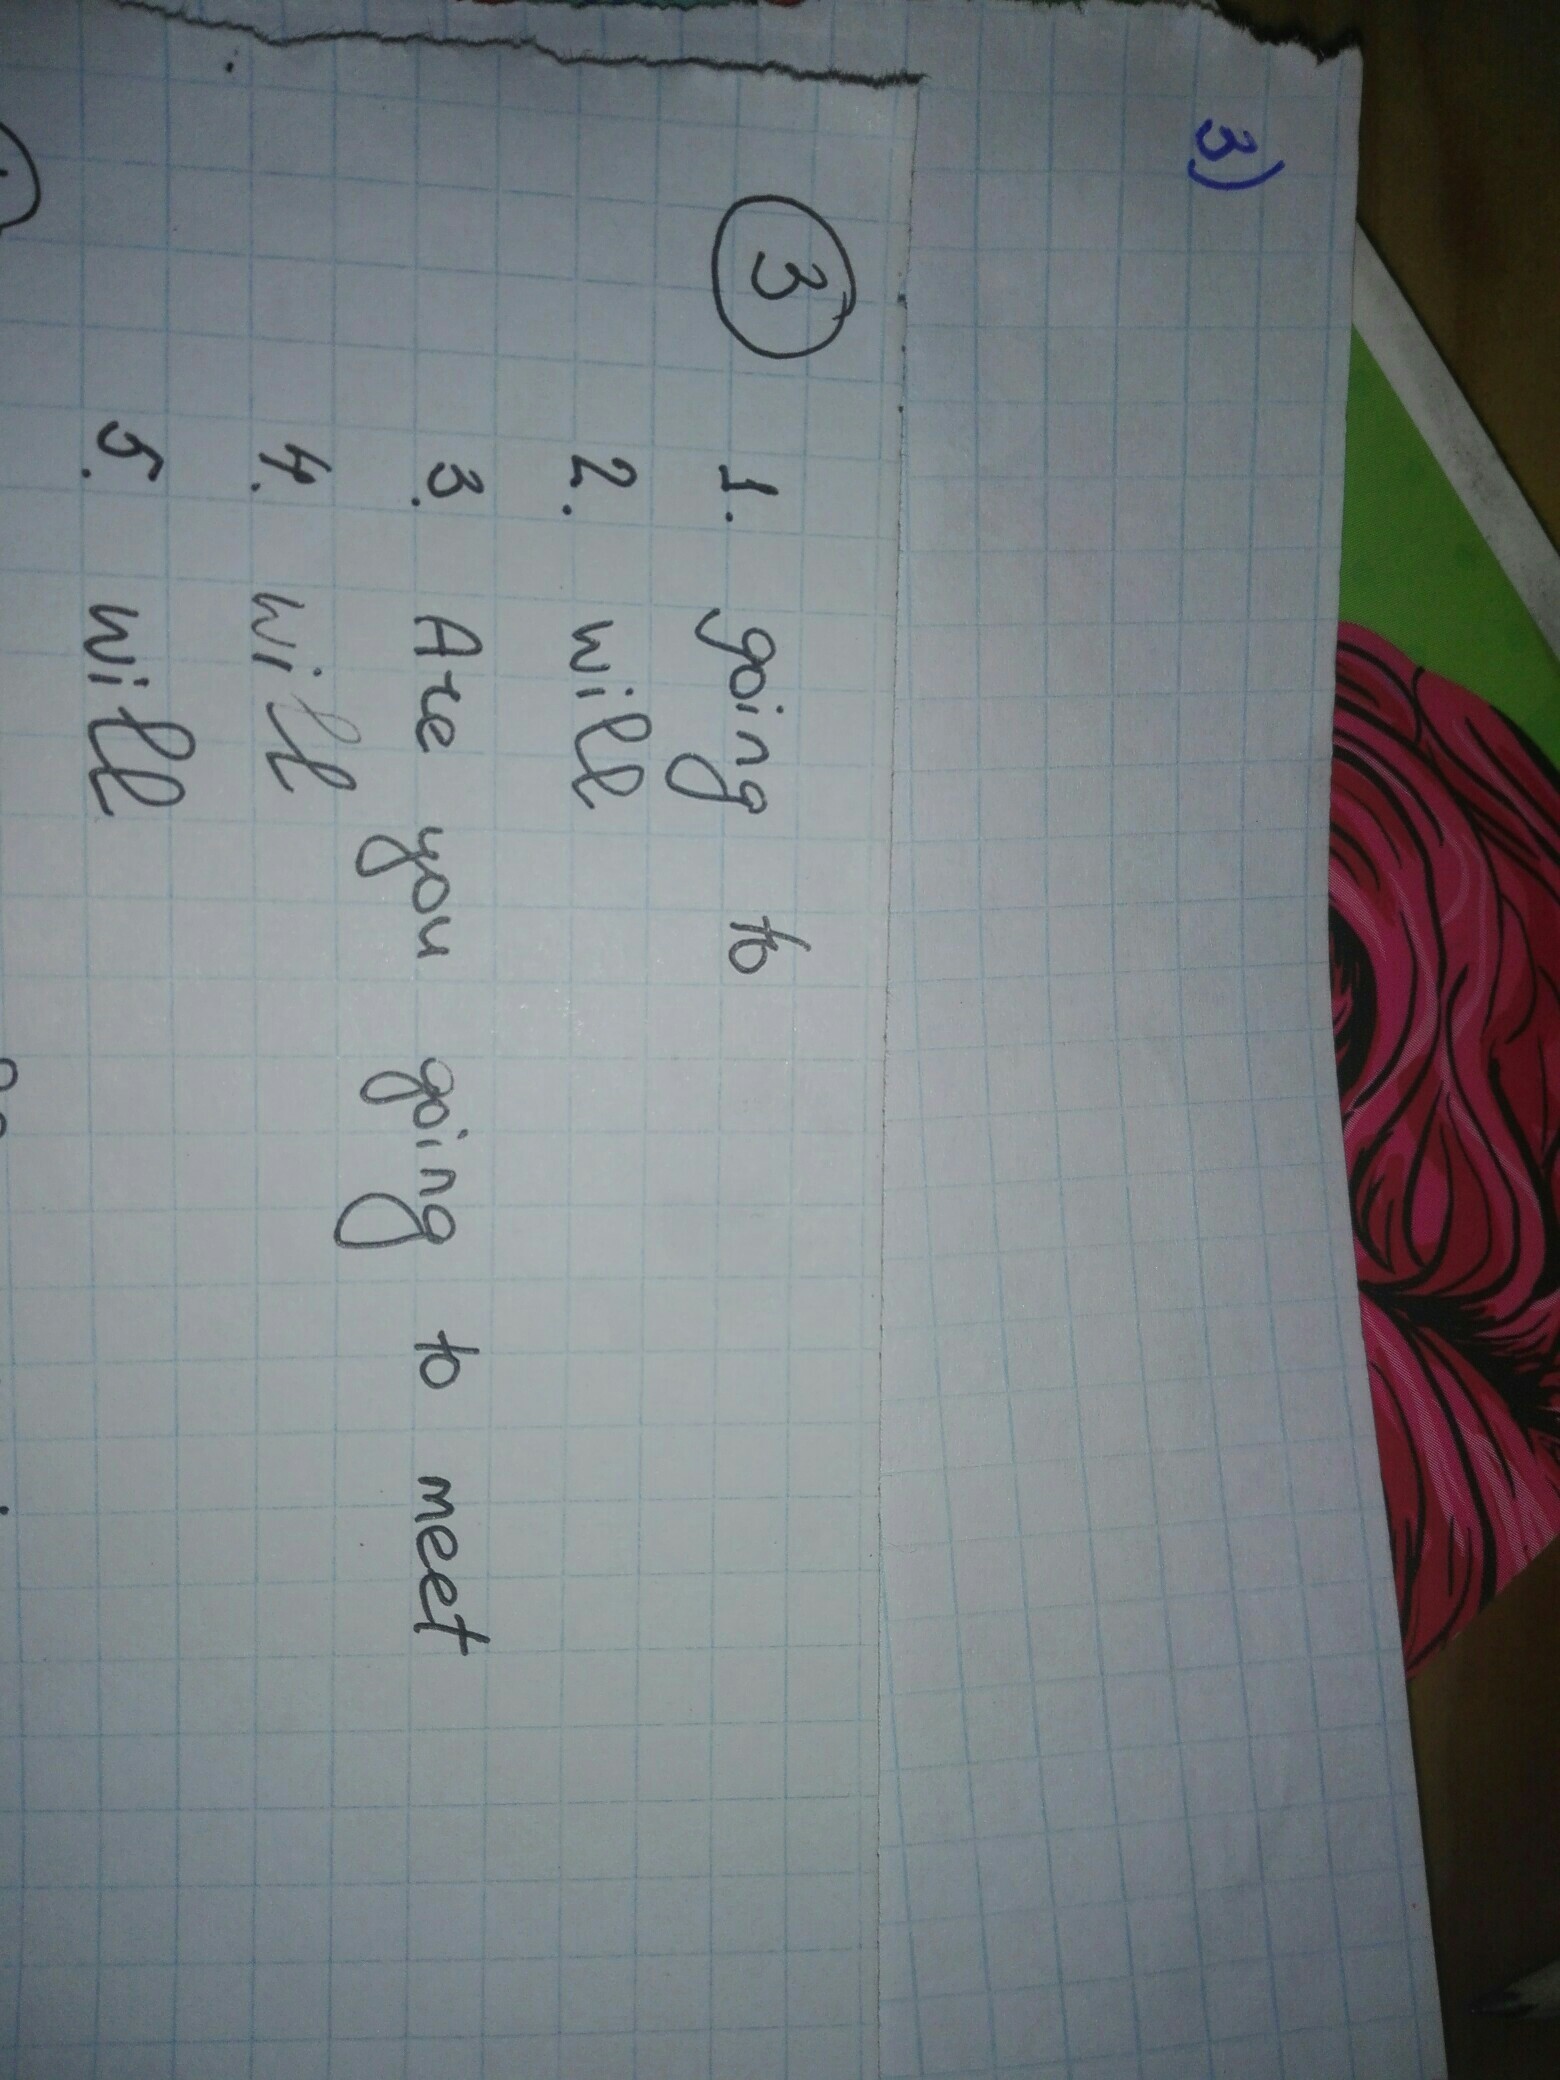 3)
3
1. going to
2. will
3. Are you going to meet
4. will
5. will